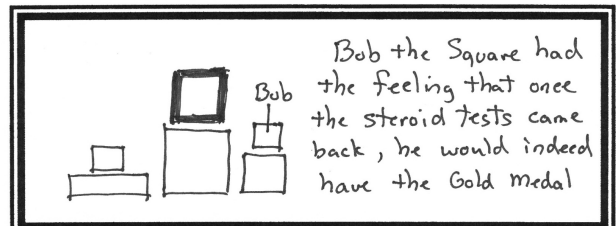 Bob the Square had
the feeling that once
Bob
the steroid tests came
back, he would indeed
have the Gold Medal